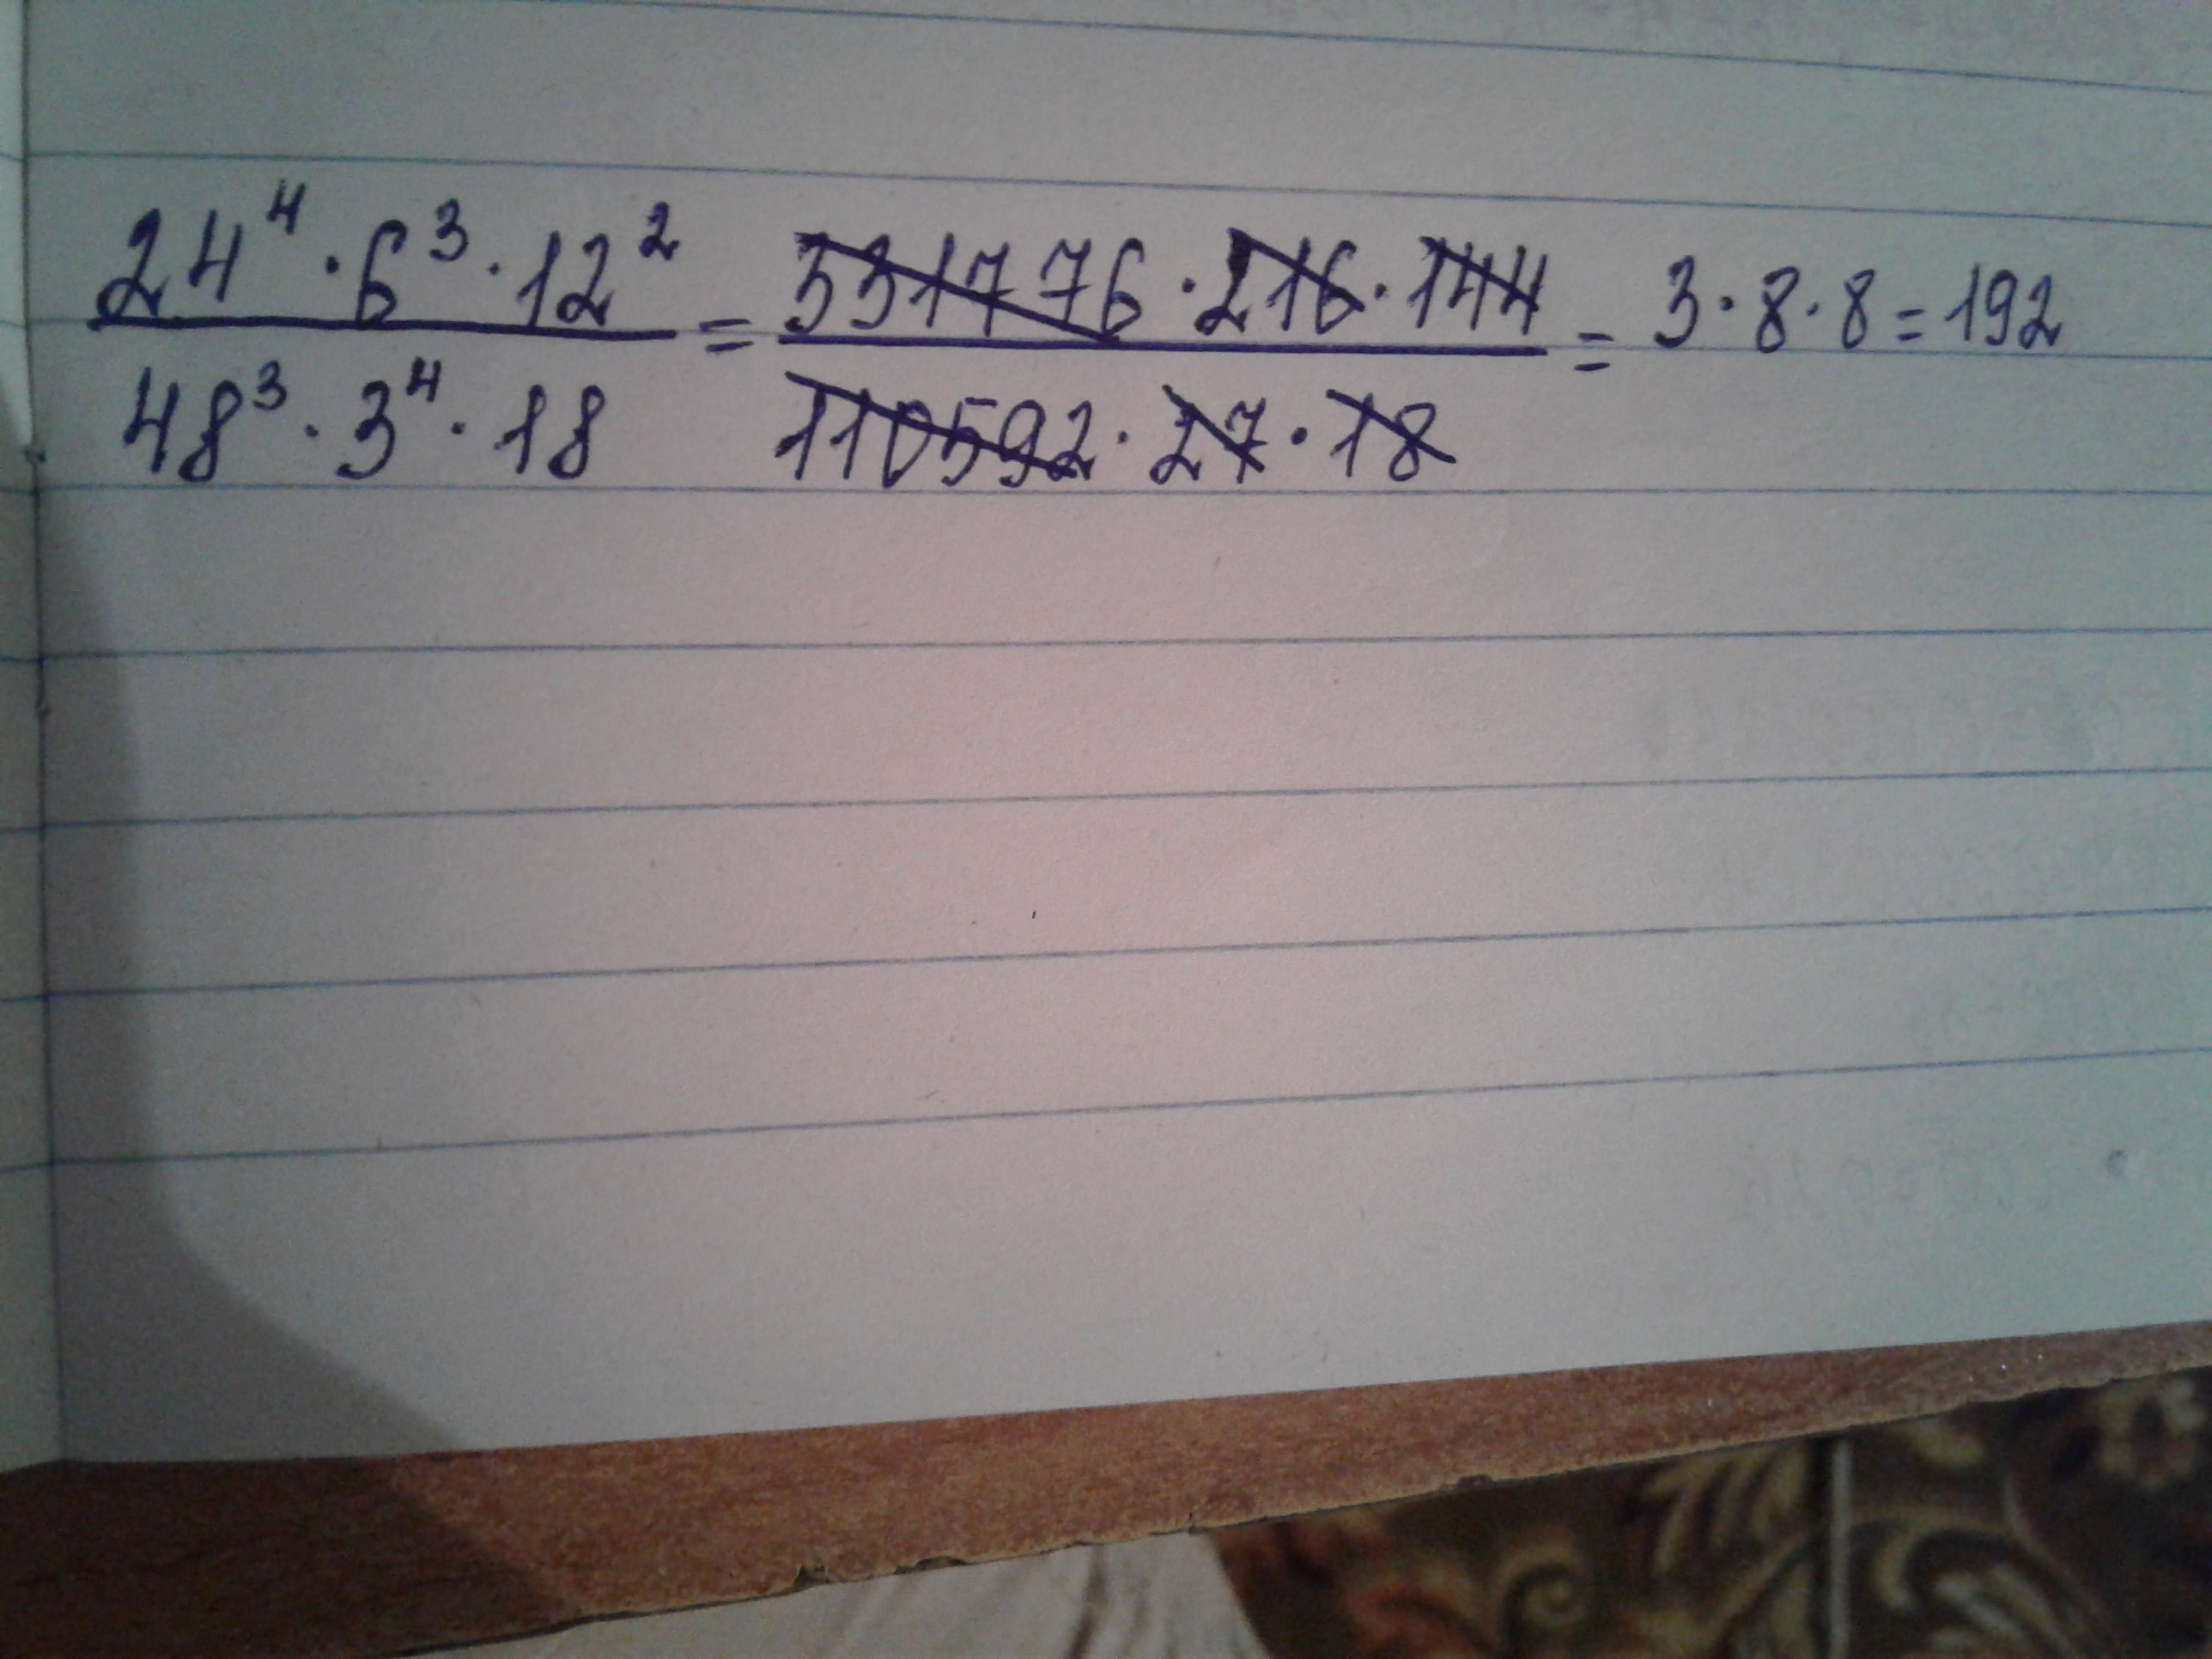 24⁴ · 6³ · 12² / 48³ · 3⁴ · 18 = 331776 · 216 · 144 / 110592 · 27 · 18 = 3 · 8 · 8 = 192